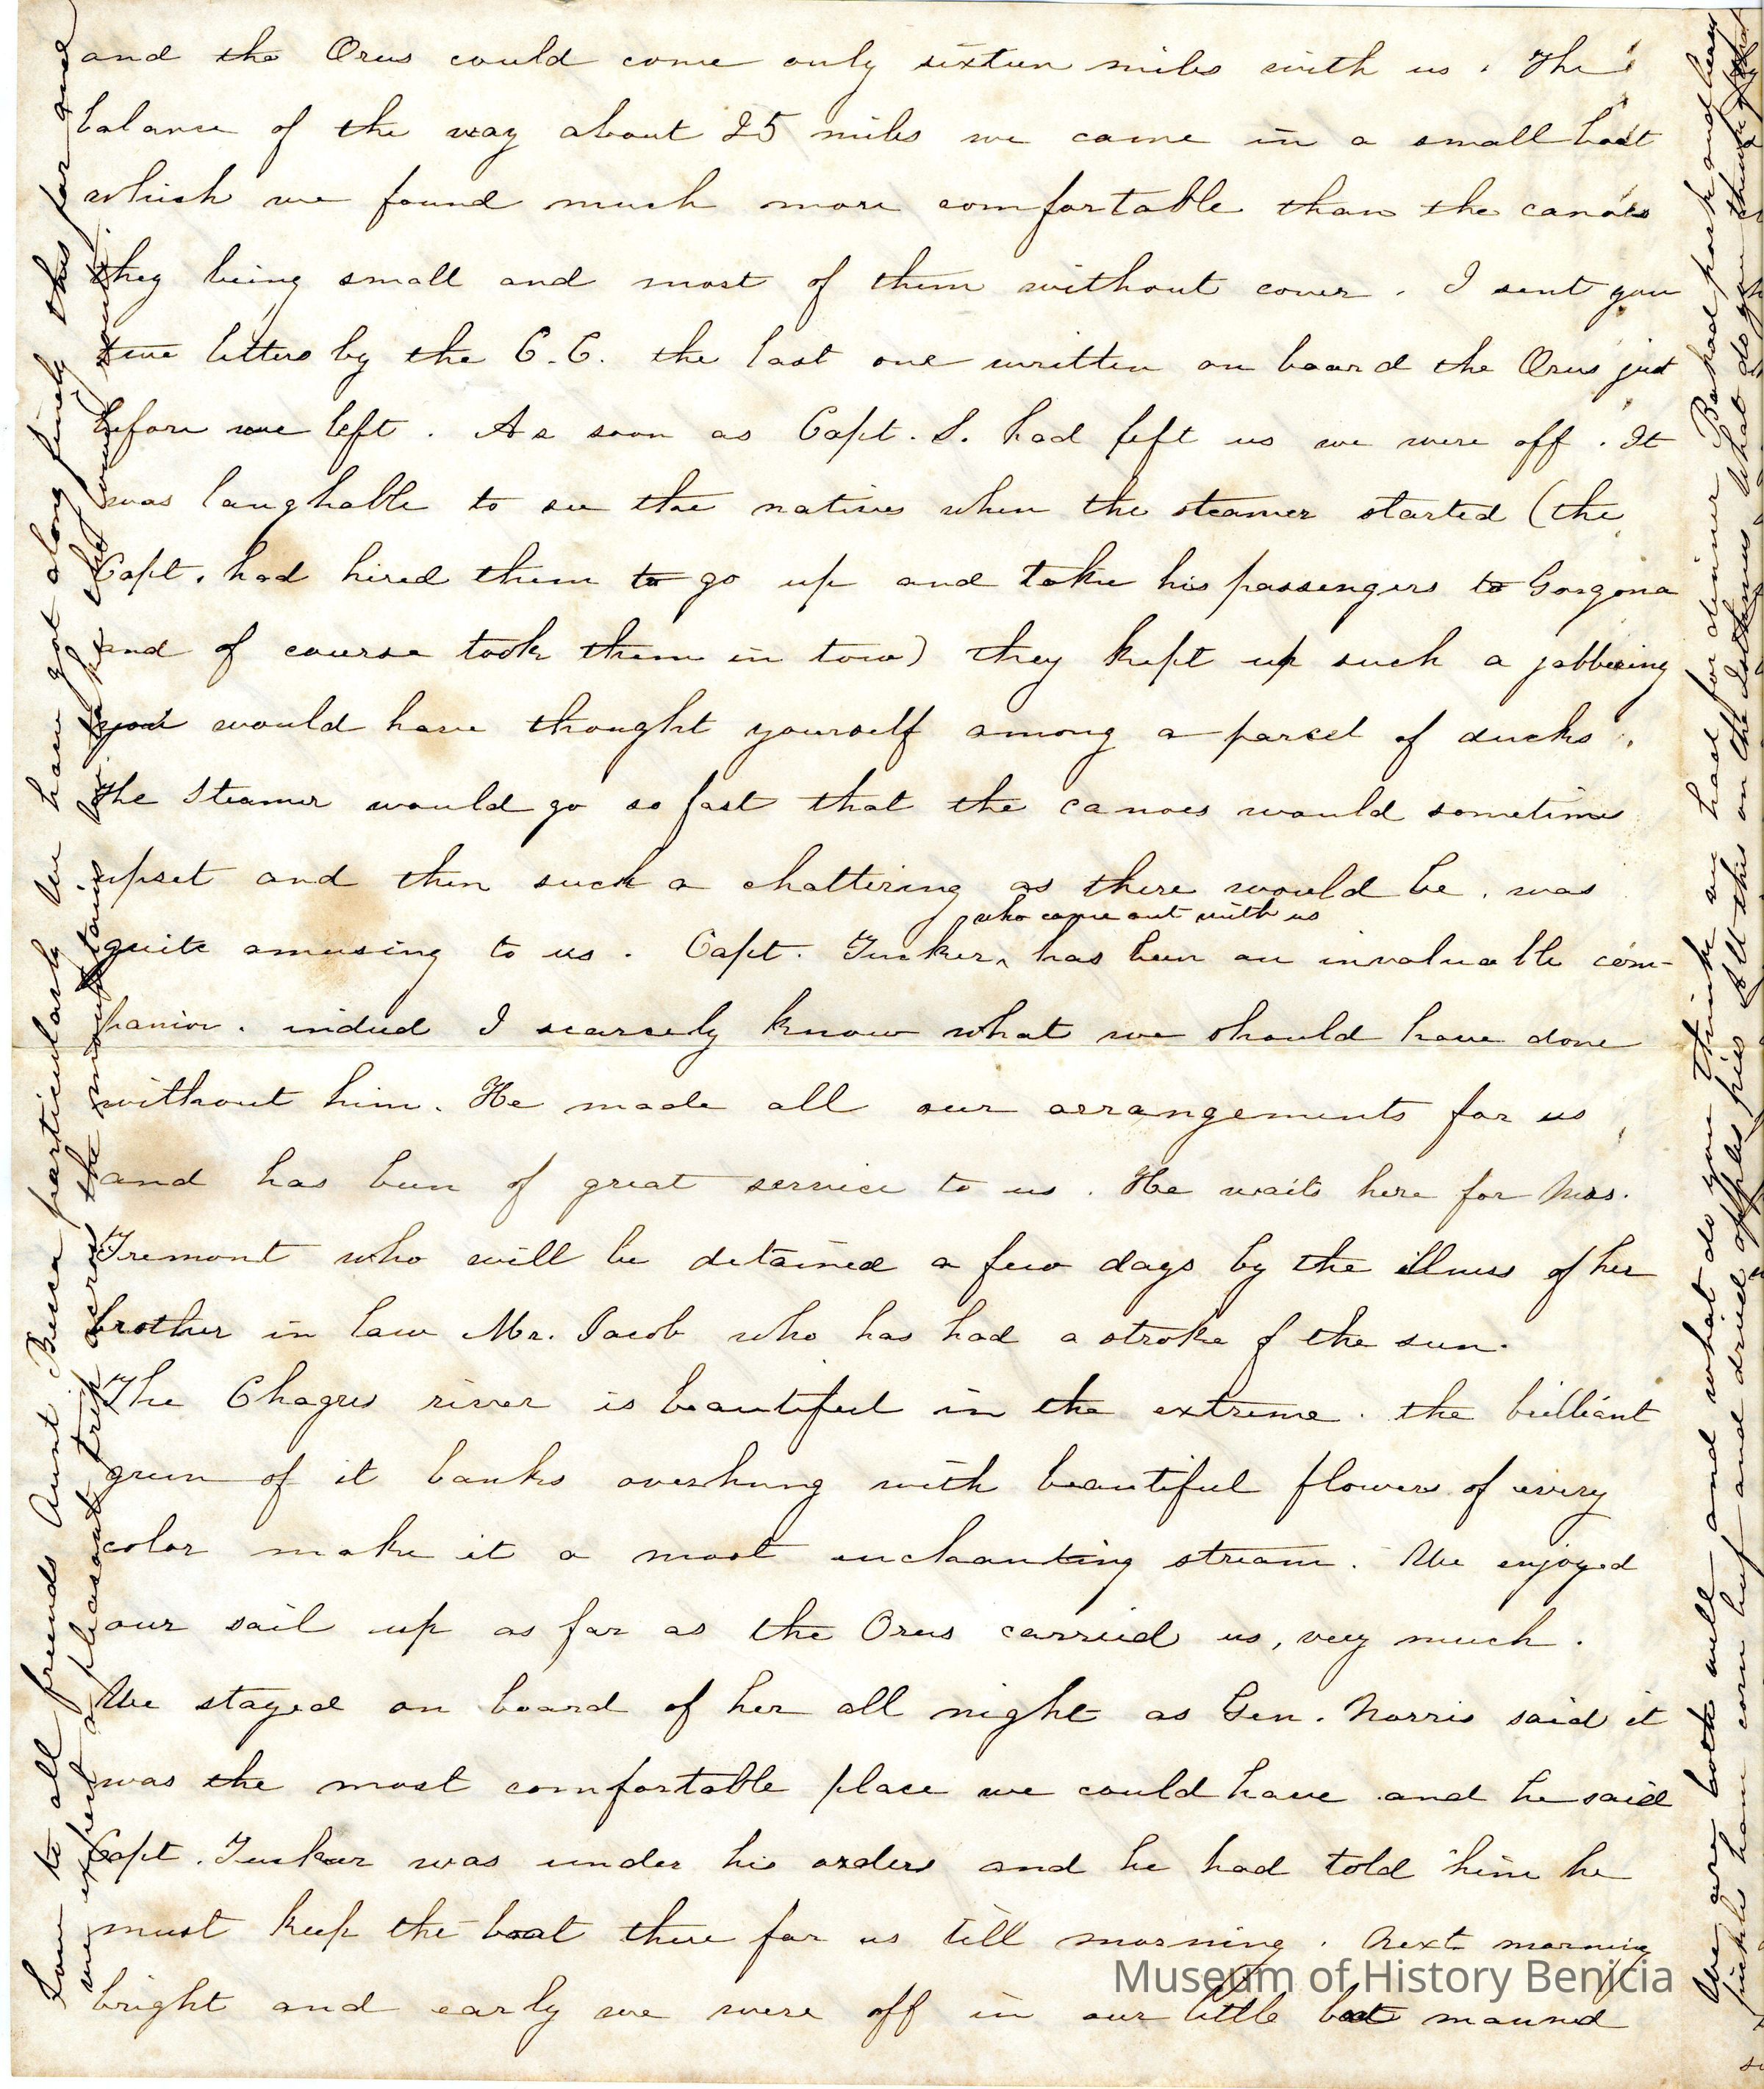 and the Orus could come only sixteen miles with us. The
balance of the way about 25 miles we came in a small boat
which we found much more comfortable than the canoes
they being small and most of them without cover. I sent you
two letters by the C.C. the last one written on board the Orus just
before we left. As soon as Capt. S. had left us we were off. It
was laughable to see the natives when the steamer started (the
Capt. had hired them to go up and take his passengers to Gorgona
and of course took them in tow) they kept up such a jabbering
you would have thought yourself among a parcel of ducks.
The Steamer would go so fast that the canoes would sometimes
upset and then such a chattering as there would be. was
who came out with us
quite amusing to us. Capt. Tucker has been an invaluable com-
panion. indeed I scarcely know what we should have done
without him. He made all our arrangements for us
and has been of great service to us. He waits here for Mrs.
Fremont who will be detained a few days by the illness of her
brother in law Mr. Jacob who has had a stroke of the sun.
The Chagres river is beautiful in the extreme. the brilliant
green of it banks overhung with beautiful flowers of every
color make it a most enchanting stream. We enjoyed
our sail up as far as the Orus carried us, very much.
We stayed on board of her all night as Gen. Norris said it
was the most comfortable place we could have and he said
Capt. Tucker was under his orders and he had told him he
must keep the boat there for us till morning. Next morning
bright and early we were off in our little boat manned
Love to all friends Aunt particularly We have got along finely this far and
we expect a pleasant trip across the mountains
We are both well and what do you think we had for dinner Baked pork and beans
pickle ham corn beef and dried apples pies All this on the Isthmus What do you think of that
Museum of History Benicia